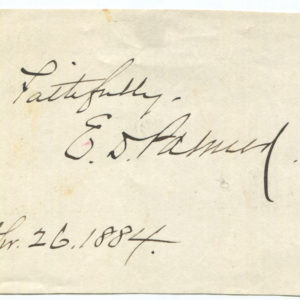 Faithfully.
E. D. Palmer.
26. 1884.